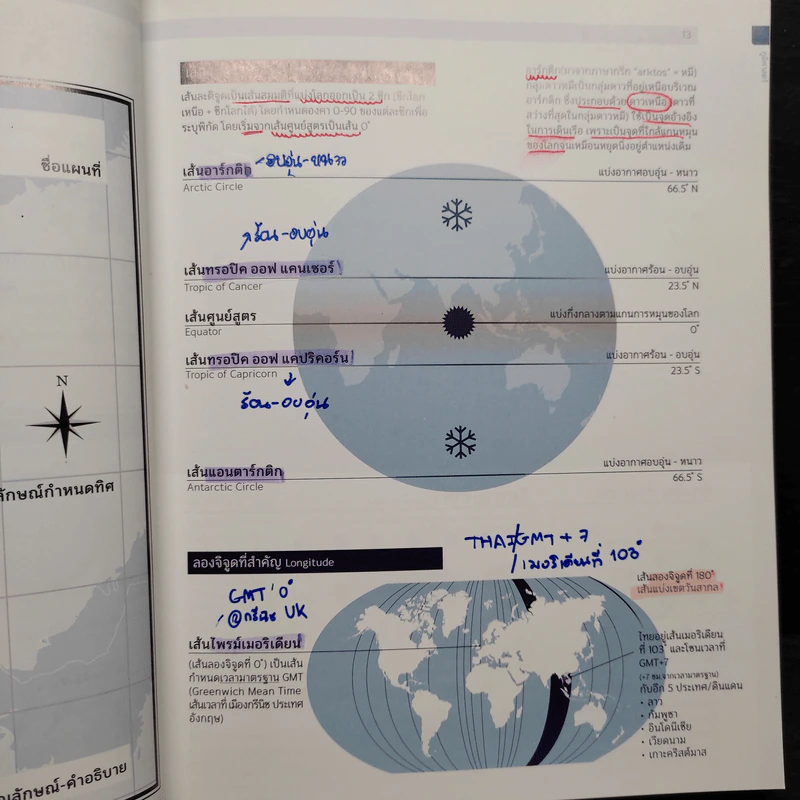 ชื่อแผนที่
N
ลักษณ์กำหนดทิศ
ญลักษณ์-คำอธิบาย
13
เส้นละติจูดเป็นเส้นสมมติที่แบ่งโลกออกเป็น 2 ซีก (ซีกโลก
เหนือ + ซีกโลกใต้) โดยกำหนดองศา 0-90 ของแต่ละซีกเพื่อ
ระบุพิกัด โดยเริ่มจากเส้นศูนย์สูตรเป็นเส้น 0°
อาร์กติก (มาจากภาษากรีก "arktos" = หมี)
กลุ่มดาวหมีเป็นกลุ่มดาวที่อยู่เหนือบริเวณ
อาร์กติก ซึ่งประกอบด้วยดาวเหนือ (ดาวที่
สว่างที่สุดในกลุ่มดาวหมี) ใช้เป็นจุดอ้างอิง
ในการเดินเรือ เพราะเป็นจุดที่ใกล้แกนหมุน
ของโลกจนเหมือนหยุดนิ่งอยู่ตำแหน่งเดิม
เส้นอาร์กติก
อบอุ่น-หนาว
Arctic Circle
แบ่งอากาศอบอุ่น - หนาว
66.5° N
ร้อน-อบอุ่น
เส้นทรอปิค ออฟ แคนเซอร์
Tropic of Cancer
แบ่งอากาศร้อน - อบอุ่น
23.5° N
เส้นศูนย์สูตร
Equator
แบ่งกึ่งกลางตามแกนการหมุนของโลก
0°
เส้นทรอปิค ออฟ แคปริคอร์น
Tropic of Capricorn
แบ่งอากาศร้อน - อบอุ่น
23.5° S
ร้อน-อบอุ่น
เส้นแอนตาร์กติก
Antarctic Circle
แบ่งอากาศอบอุ่น - หนาว
66.5° S
ลองจิจูดที่สำคัญ Longitude
THAI/GMT + 7
/ เมอริเดียนที่ 103°
GMT 0°
@กรีนิช UK
เส้นไพรม์เมอริเดียน
(เส้นลองจิจูดที่ 0°) เป็นเส้น
กำหนดเวลามาตรฐาน GMT
(Greenwich Mean Time
เส้นเวลาที่ เมืองกรีนิช ประเทศ
อังกฤษ)
เส้นลองจิจูดที่ 180°
เส้นแบ่งเขตวันสากล
ไทยอยู่เส้นเมอริเดียน
ที่ 103° และโซนเวลาที่
GMT+7
(+7 ชม.จากเวลามาตรฐาน)
กับอีก 5 ประเทศ/ดินแดน
• ลาว
• กัมพูชา
• อินโดนีเซีย
• เวียดนาม
• เกาะคริสต์มาส